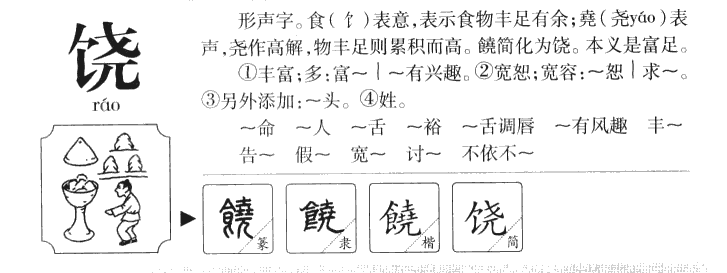 饶
ráo
形声字。食(饣)表意,表示食物丰足有余;堯(尧yáo)表
声,尧作高解,物丰足则累积而高。饒简化为饶。本义是富足。
①丰富;多:富~丨~有兴趣。②宽恕;宽容:~恕丨求~。
③另外添加:~头。④姓。
~命 ~人 ~舌 ~裕 ~舌调唇 ~有风趣 丰~
告~ 假~ 宽~ 讨~ 不依不~
饒 篆 饒 隶 饒 楷 饶 简